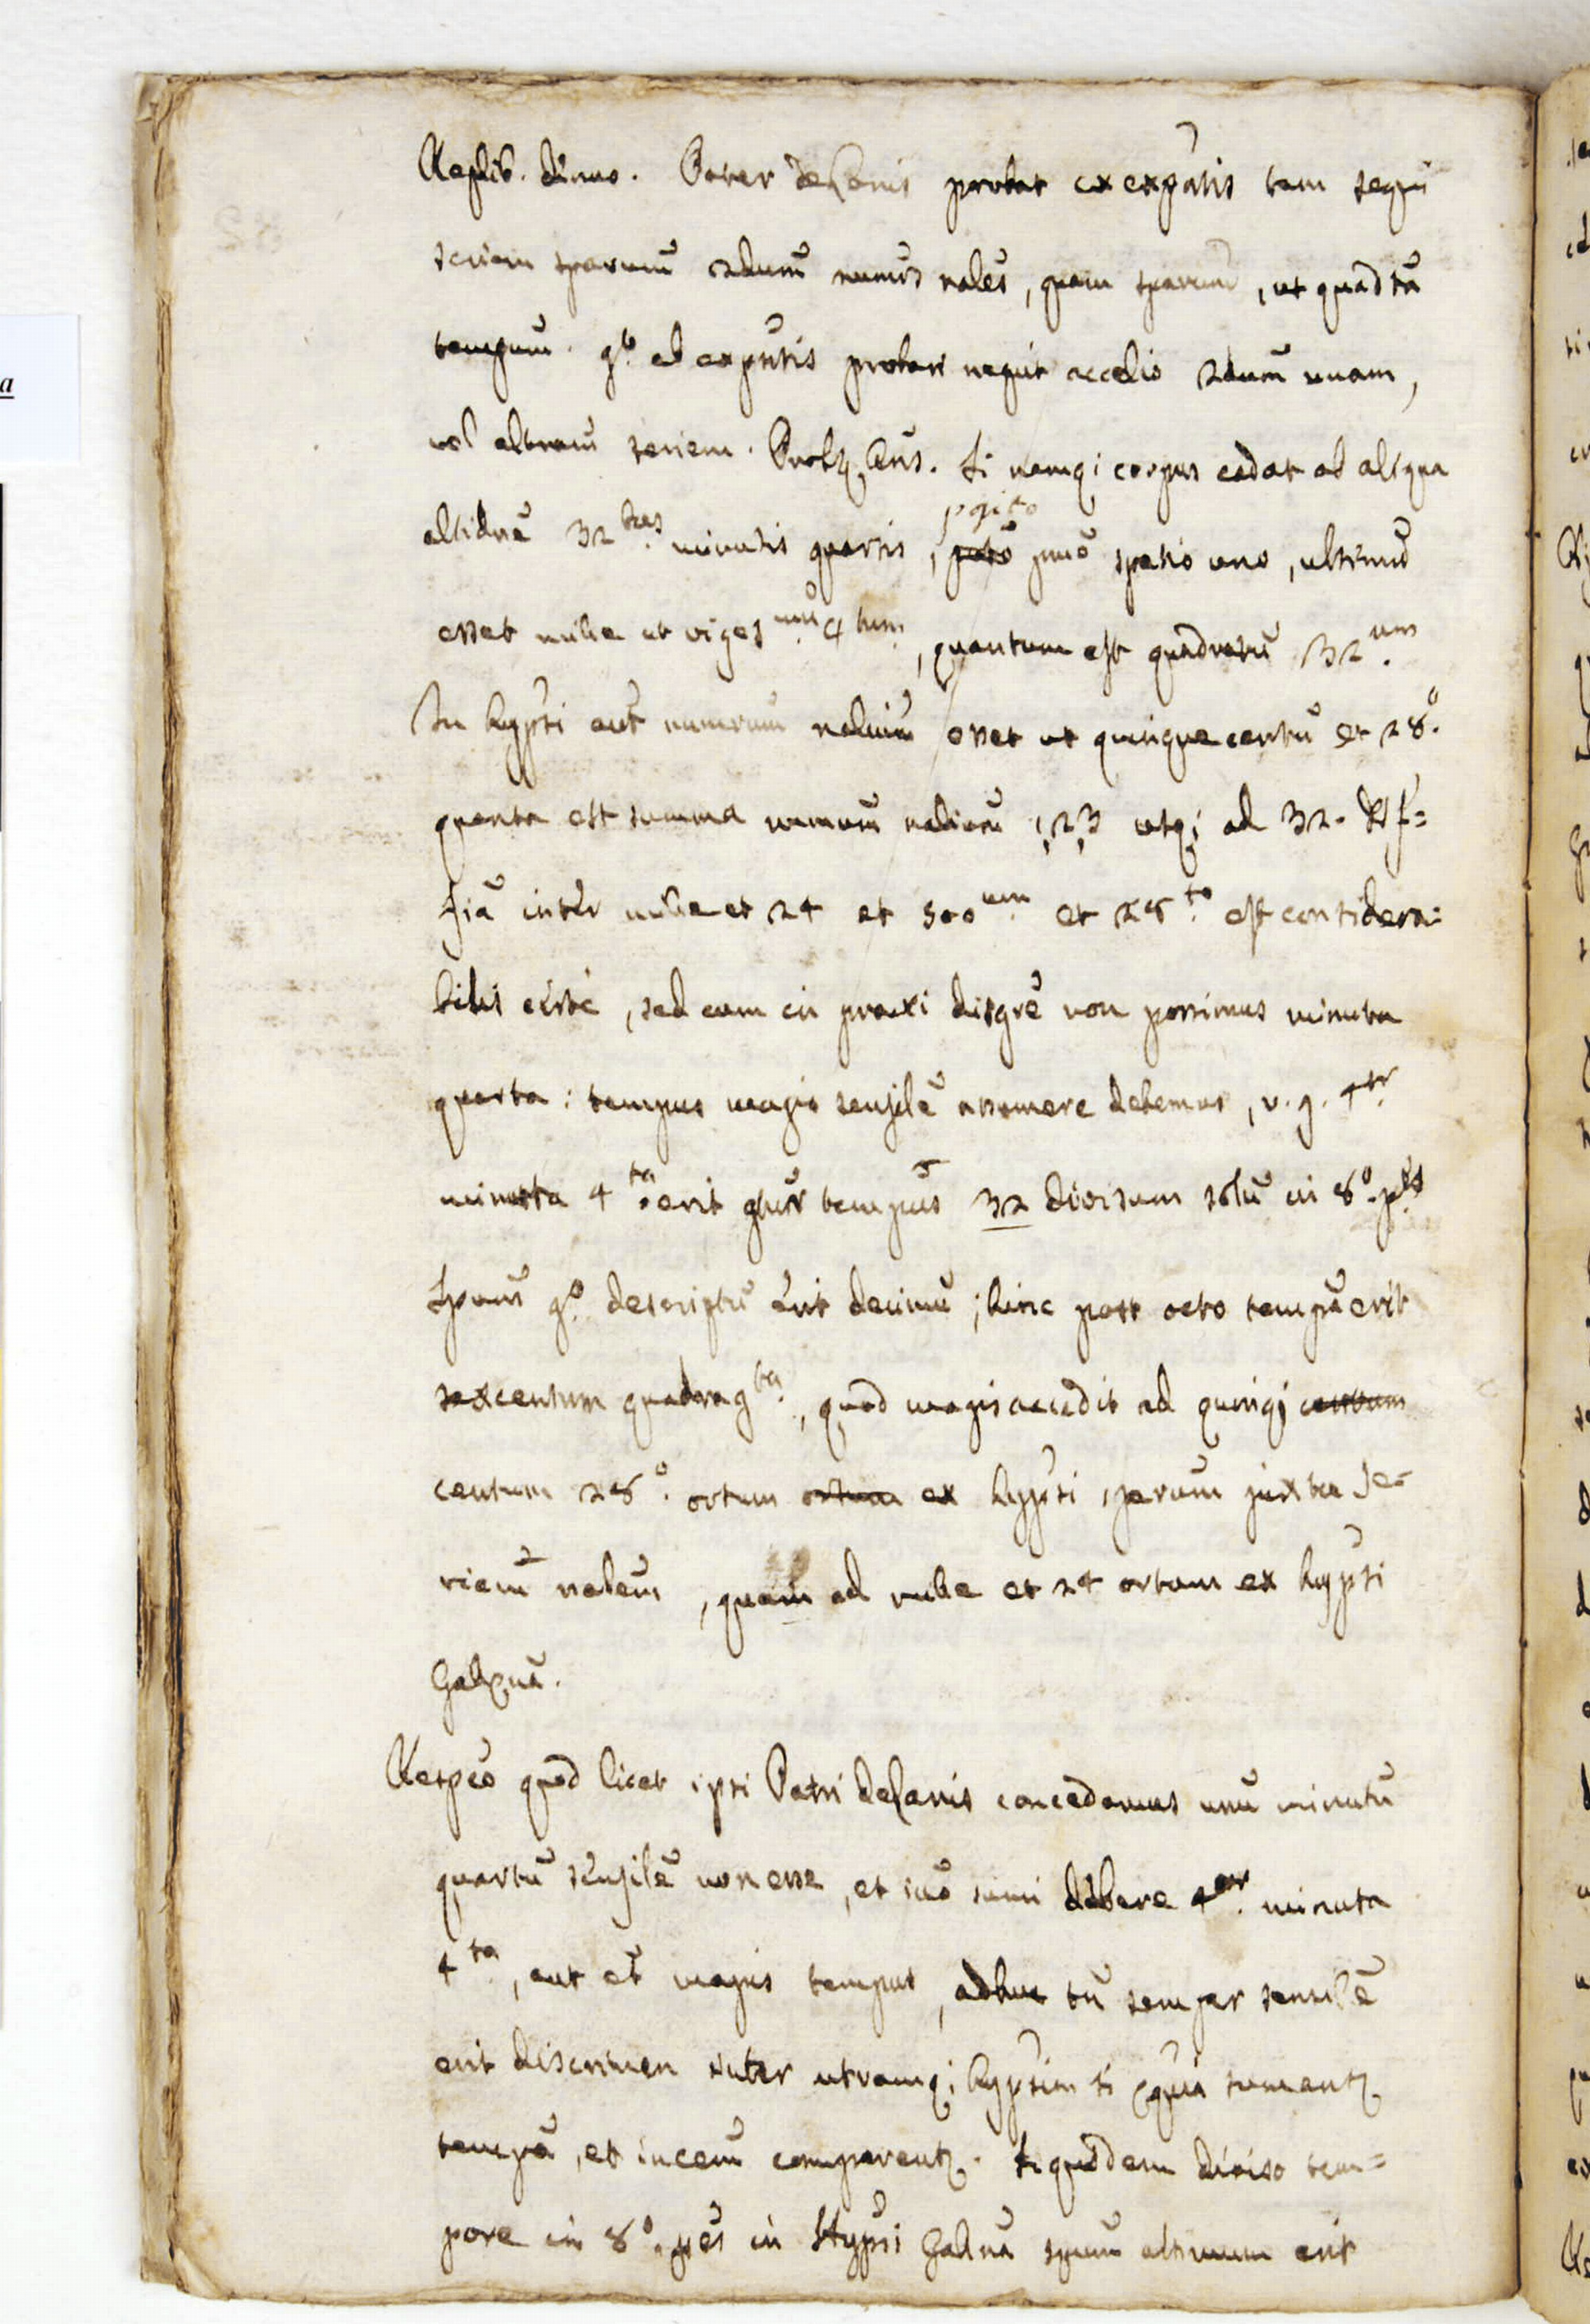 a
Replib. dinuo. Pater deChanis probat ex expntis tam sequi
seriem sparum 2dum numos nales, quam sparum, ut quadta
tempum. go. ab expntis probari nequit accelio 2dum unam,
vel alteram seriem. Probtr Ans. Si namq; corpus cadat ab aliqua
altidne 32.bus minutis quartis, posito
pmo spatio uno, ultimu
esset mille et viges.mu 4.tum, quantum est quadratu 32.um
In hypsi aut numerum nalium esset ut quinque centu et 28.o
quanta est summa numeru nalium 1,2,3 usq; ad 32. Dif=
fia inter mille et 24 et 500.um et 28.to est considera=
bilis certe, sed cum in praxi disgre non possimus minuta
quarta: tempus magis sensile assumere debemus, v. g. 4.tr
minuta 4.ta erit gtur tempus 32 divisum solu in 8.o ptes
Spum go. descriptu erit decimu; hinc post octo tempa erit
sexcentum quadrag.ta, quod magis accedit ad quinq; centum
centum 28.o ortum ortum ex hypsi sparum juxta se=
riem nalem, quam ad mille et 24 ortam ex hypsi
Galna.
Respeo quod licet ipsi Patri deChanis concedamus unu minutu
quartu sensile non esse, et ideo sumi debere 4.or minuta
4.ta, aut et magis tempus, adhuc tn semper sensile
erit discrimen inter utramq; hypsim si equa sumantr
tempa, et invicem comparentr. Siquidem diviso tem=
pore in 8.o ptes in Hypsi Galna spum ultimum erit